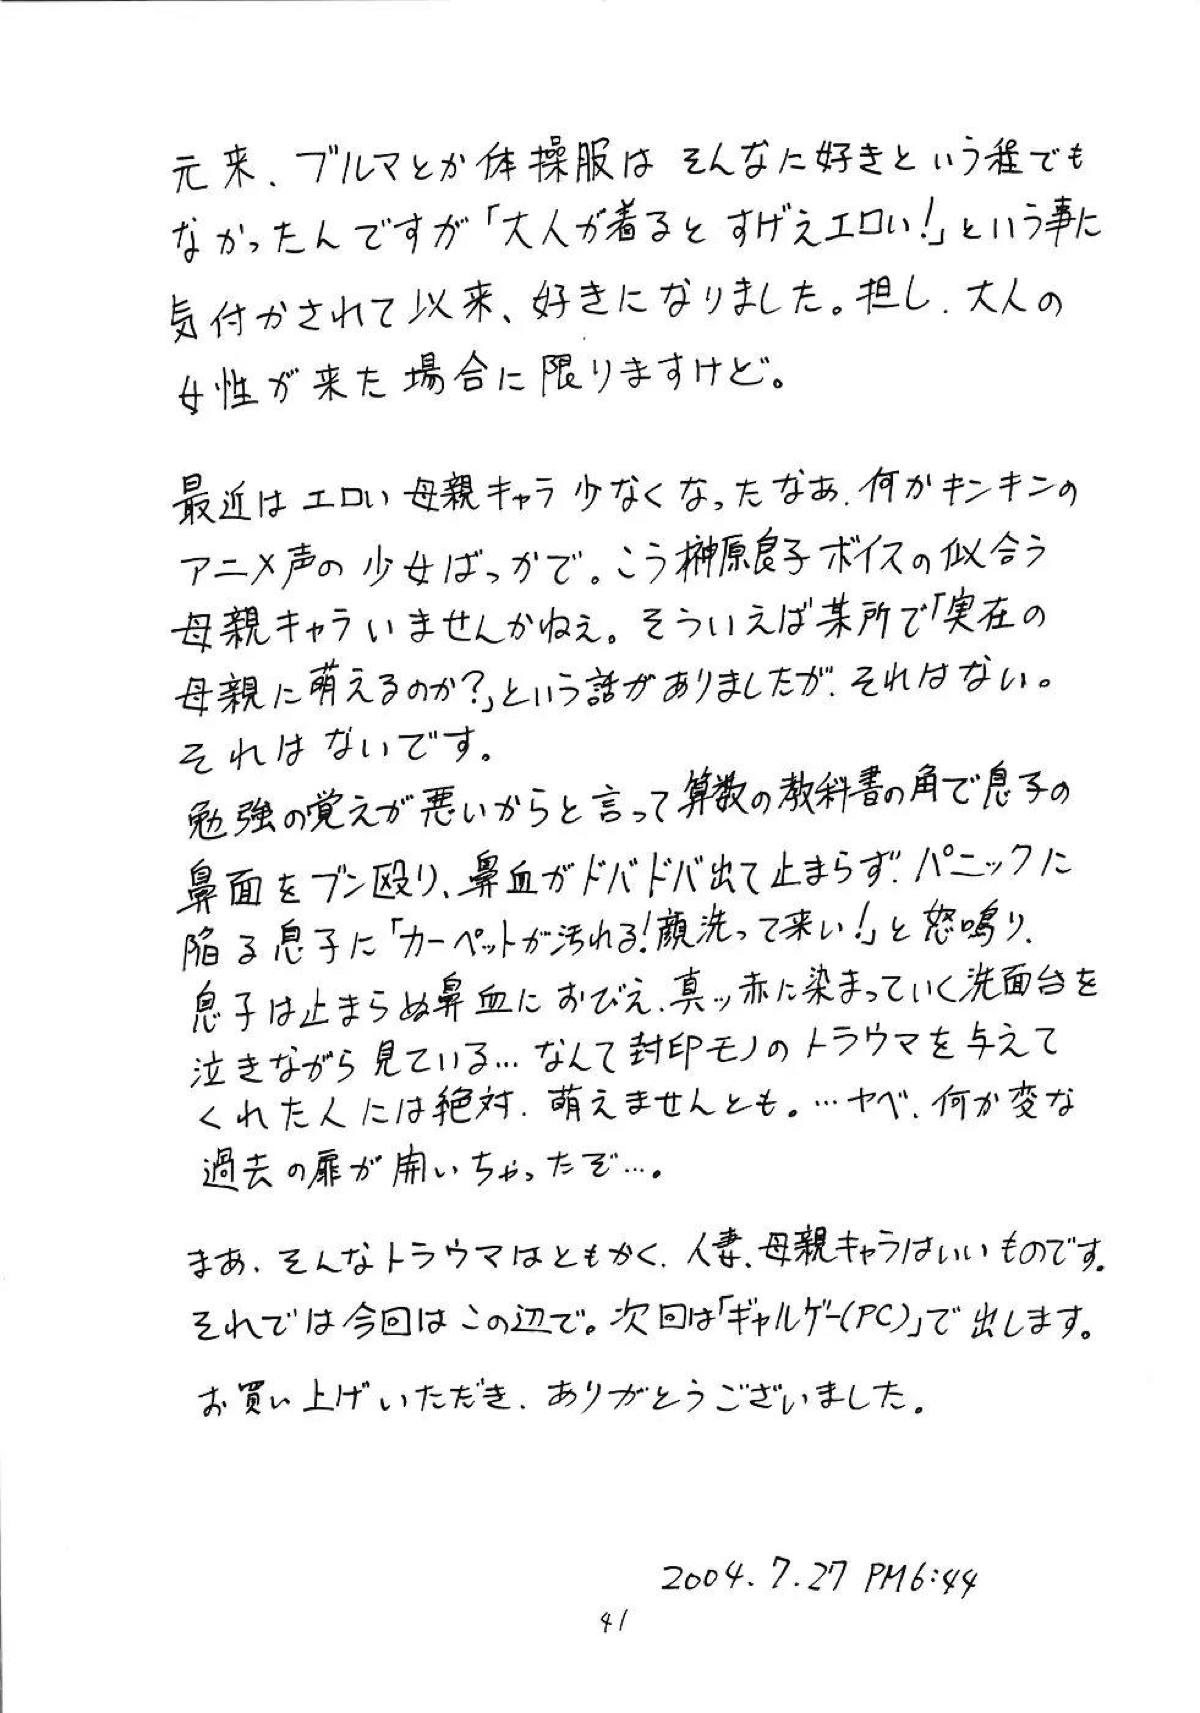 元来、ブルマとか体操服は そんなに好きという程でも
なかったんですが「大人が着ると すげえエロい!」という事に
気付かされて以来、好きになりました。担し、大人の
女性が来た場合に限りますけど。
最近は エロい 母親キャラ 少なくなったなあ、何かキンキンの
アニメ声の 少女ばっかで。こう榊原良子ボイスの似合う
母親キャラいませんかねえ。そういえば某所で「実在の
母親に萌えるのか?」という話がありましたが、それはない。
それは ないです。
勉強の覚えが悪いからと言って算数の教科書の角で息子の
鼻面をブン殴り、鼻血がドバドバ出て止まらず、パニックに
陥る息子に「カーペットが汚れる!顔洗って来い!」と怒鳴り、
息子は止まらぬ鼻血に おびえ、真ッ赤に染まっていく洗面台を
泣きながら見ている…なんて封印モノのトラウマを与えて
くれた人には絶対、萌えませんとも。…ヤベ、何か変な
過去の扉が開いちゃったぞ…。
まあ、そんなトラウマはともかく、人妻、母親キャラはいいものです。
それでは今回はこの辺で。次回は「ギャルゲー(PC)」で出します。
お買い上げいただき、ありがとうございました。
2004.7.27 PM6:44
41